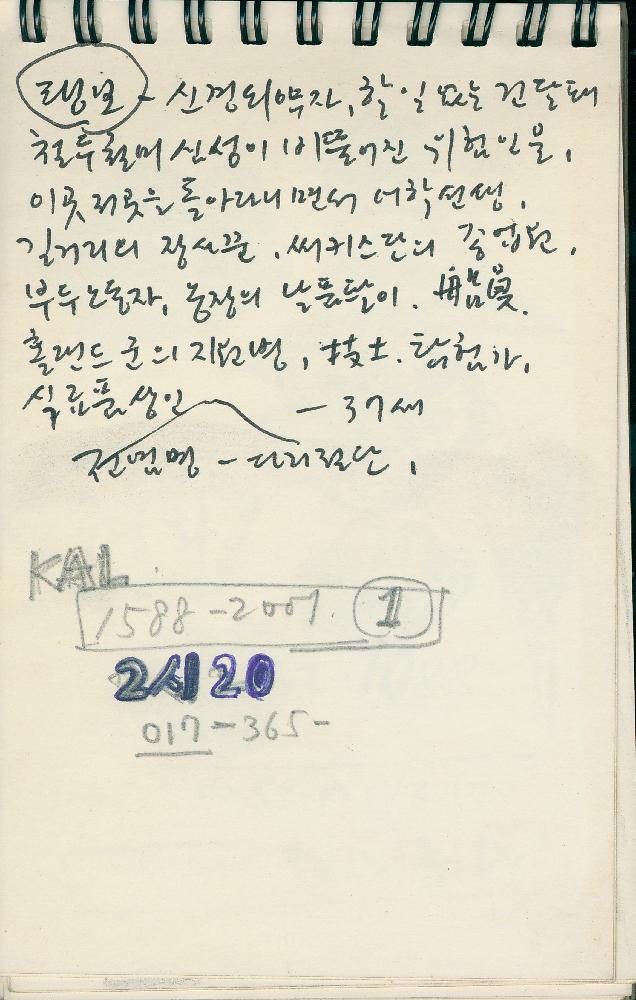 랭보 - 신경쇠약자, 할일 없는 건달패
철두철미 심성이 비뚤어진 위험인물,
이곳저곳을 돌아다니면서 어학선생,
길거리의 장사꾼, 써커스단의 종업원,
부두노동자, 농장의 날품팔이, 船員.
홀랜드 군의 지원병, 技士. 탐험가,
식료품상인 - 37세
전염병 - 다리절단,
KAL
1588-2001. 1
2시20
017-365-